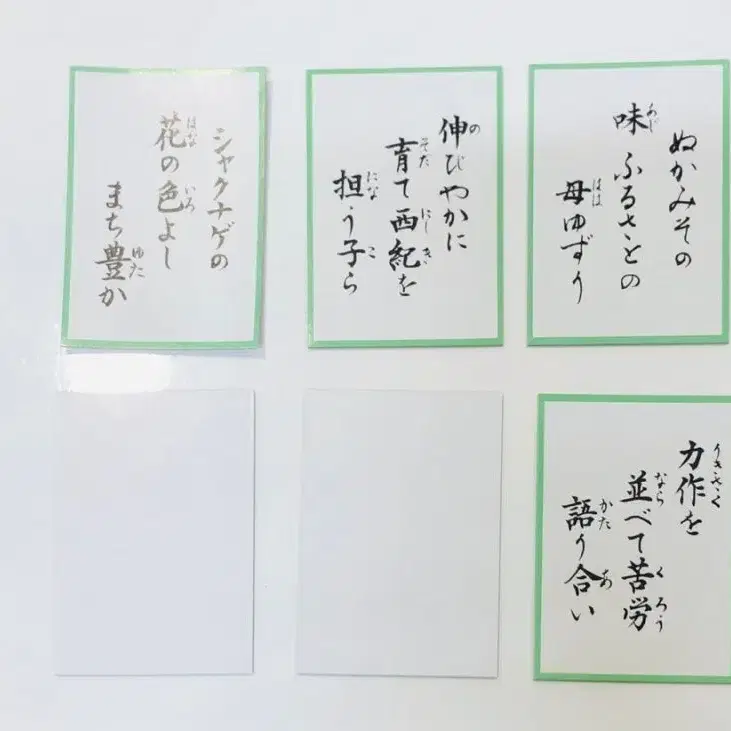 シャクナゲの
花の色よし
まち豊か
伸びやかに
育て西紀を
担う子ら
ぬかみその
味ふるさとの
母ゆずり
力作を
並べて苦労
語り合い